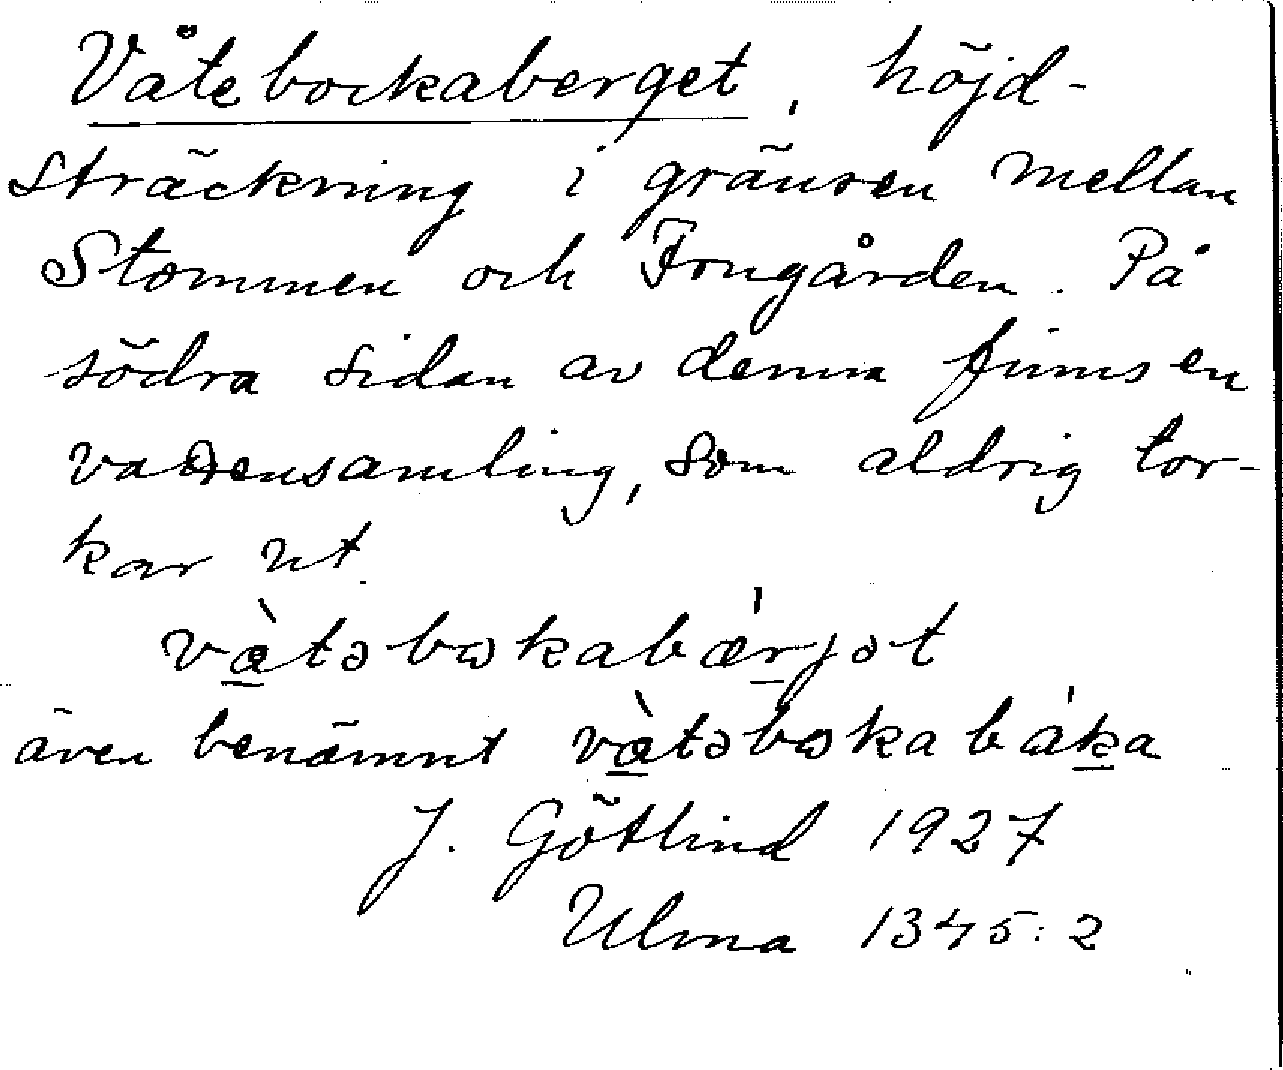 Våtebockaberget, höjd-
sträckning i gränsen mellan
Stommen och Frugården. På
södra sidan av denna finns en
vattensamling, som aldrig tor-
kar ut.
vàtəbωkabǽrjət
även benämnt vàtəbωkabáka
J. Götlind 1927
Ulma 1345:2